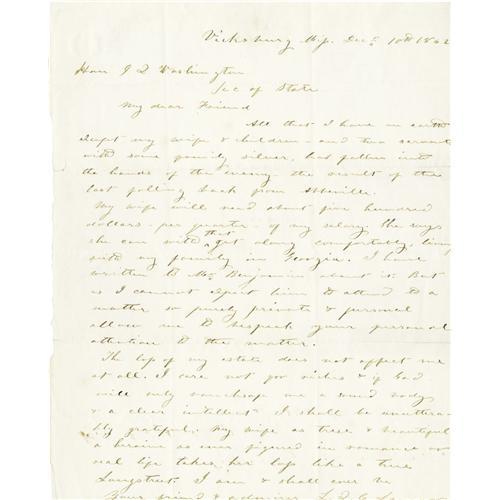 Vicksburg, Mip. Dec. 10th 1862
Hon J Q Washington
Sec of State
My dear Friend
All that I have on earth
Except my wife & children - and two servants
with some family silver, has fallen into
the hands of the enemy the result of the
last falling back from Abbeville.
My wife will need about five hundred
dollars - per quarter - of my salary. She says
she can with that get along comfortably, living
with my family in Georgia. I have
written to Mr Benjamin about it. But
as I cannot expect him to attend to a
matter so purely private & personal
allow me to bespeak your personal
attention to the matter.
The loss of my estate does not affect me
at all. I care not for riches & if God
will only vouchsafe me a sound body
& a clear intellect I shall be unuttera-
bly grateful. My wife as true & beautiful
a heroine as ever figured in romance or
real life takes her loss like a true
Longstreet. I am & shall ever be
Your friend & admirer L. Q. C. Lamar